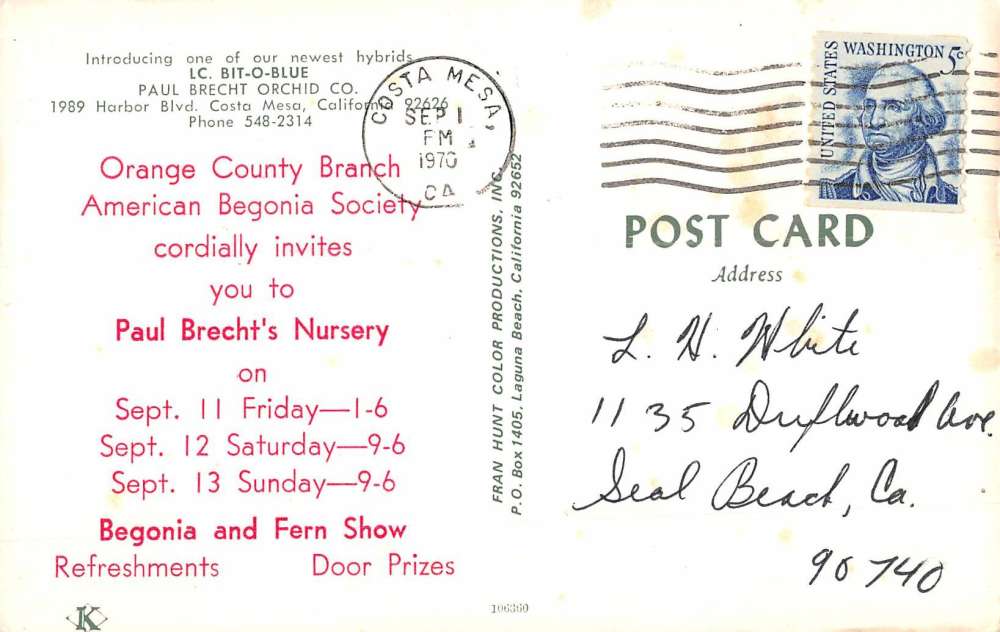 Introducing one of our newest hybrids
LC. BIT-O-BLUE
PAUL BRECHT ORCHID CO.
1989 Harbor Blvd. Costa Mesa, California 92626
Phone 548-2314
Orange County Branch
American Begonia Society
cordially invites
you to
Paul Brecht's Nursery
on
Sept. 11 Friday—1-6
Sept. 12 Saturday—9-6
Sept. 13 Sunday—9-6
Begonia and Fern Show
Refreshments Door Prizes
K
COSTA MESA,
SEP 1
PM
1970
CA
FRAN HUNT COLOR PRODUCTIONS, INC.
P.O. Box 1405, Laguna Beach, California 92652
106360
UNITED STATES
WASHINGTON 5c
POST CARD
Address
L. H. White
1135 Driftwood Ave.
Seal Beach, Ca.
90740